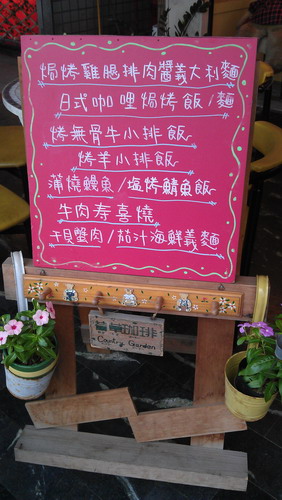 焗烤雞腿排肉醬義大利麵
日式咖哩焗烤飯/麵
烤無骨牛小排飯
烤羊小排飯
蒲燒鰻魚/塩烤鯖魚飯
牛肉寿喜燒
干貝蟹肉/茄汁海鮮義麵
咖啡
Country Garden